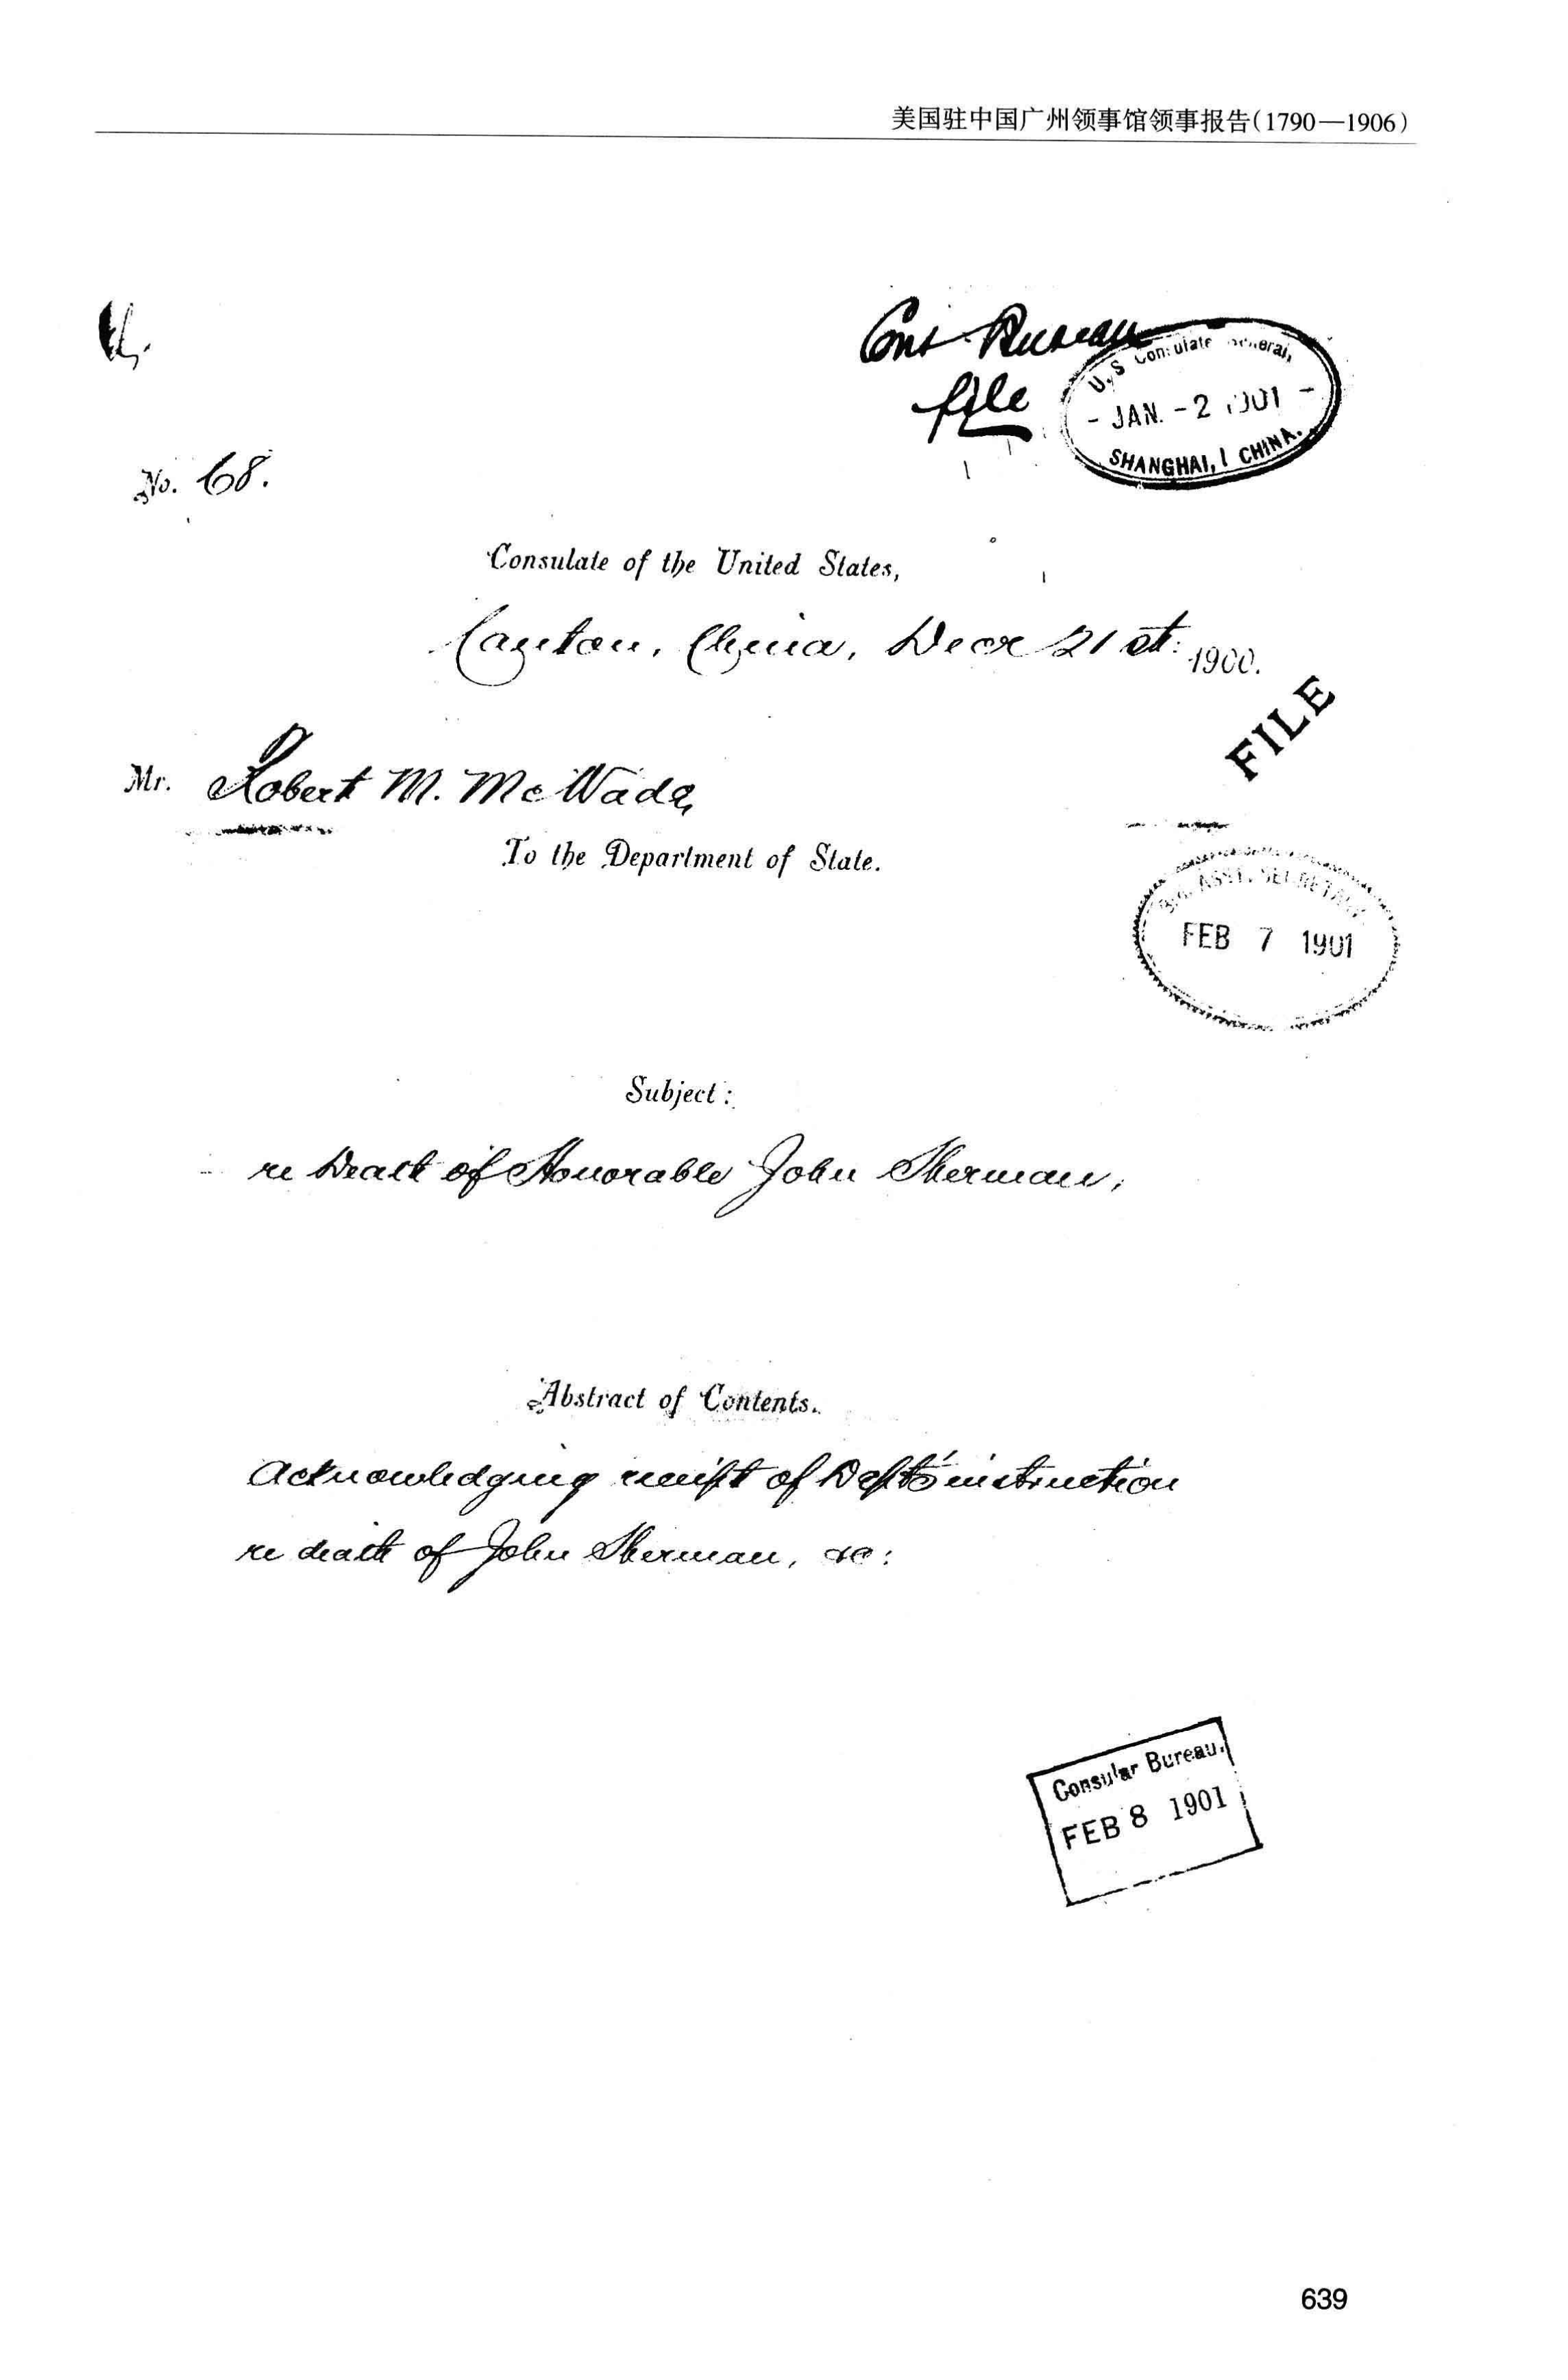 美国驻中国广州领事馆领事报告(1790—1906)
Cons Bureau
file
U.S. Consulate General,
JAN. - 2 1901
SHANGHAI, CHINA.
No. 68.
Consulate of the United States,
Canton, China, Decr 21st: 1900.
FILE
Mr. Robert M. McWade,
To the Department of State.
ASST. SECRETARY
FEB 7 1901
Subject:
re Death of Honorable John Sherman,
Abstract of Contents.
Acknowledging receipt of Dept's instruction
re death of John Sherman, &c:
Consular Bureau.
FEB 8 1901
639